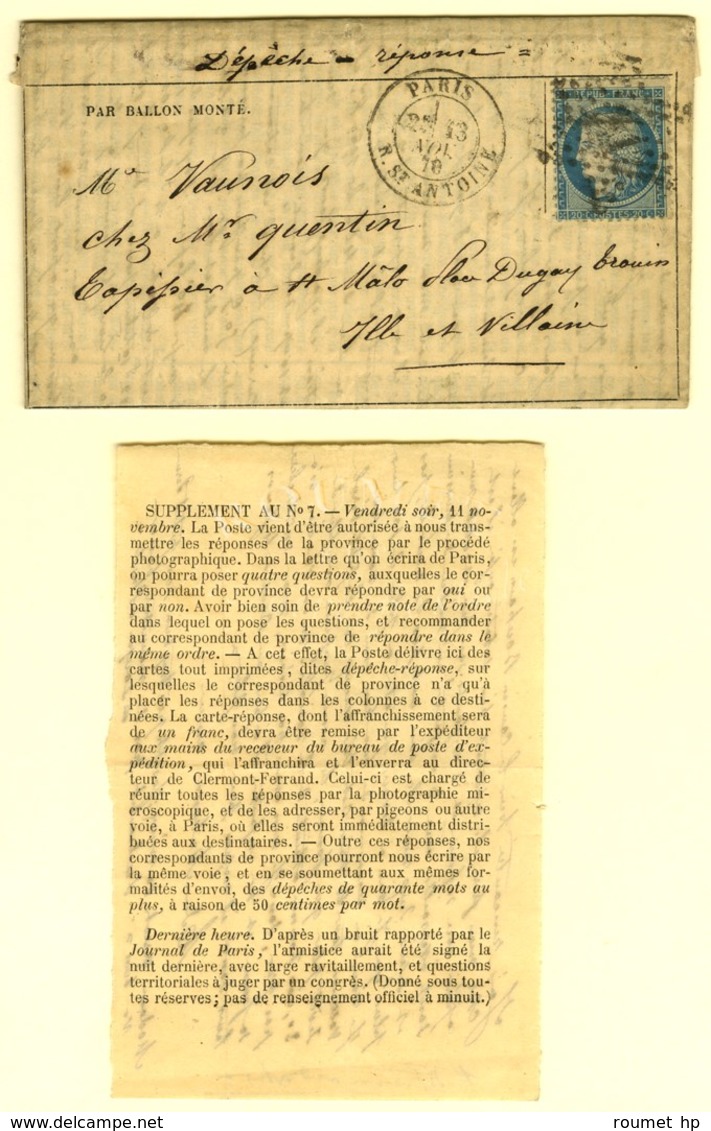 Dépêche - réponse =
PAR BALLON MONTÉ.
PARIS
13
NOV.
70
R. ST ANTOINE
RÉPUB. FRANC.
20 C. POSTES 20 C.
Me Vaunois
chez Mr quentin
Tapissier à St Mâlo place Dugay Trouin
Ille et Villaine
SUPPLEMENT AU No 7. — Vendredi soir, 11 no-
vembre. La Poste vient d'être autorisée à nous trans-
mettre les réponses de la province par le procédé
photographique. Dans la lettre qu'on écrira de Paris,
on pourra poser quatre questions, auxquelles le cor-
respondant de province devra répondre par oui ou
par non. Avoir bien soin de prendre note de l'ordre
dans lequel on pose les questions, et recommander
au correspondant de province de répondre dans le
même ordre. — A cet effet, la Poste délivre ici des
cartes tout imprimées, dites dépêche-réponse, sur
lesquelles le correspondant de province n'a qu'à
placer les réponses dans les colonnes à ce desti-
nées. La carte-réponse, dont l'affranchissement sera
de un franc, devra être remise par l'expéditeur
aux mains du receveur du bureau de poste d'ex-
pédition, qui l'affranchira et l'enverra au direc-
teur de Clermont-Ferrand. Celui-ci est chargé de
réunir toutes les réponses par la photographie mi-
croscopique, et de les adresser, par pigeons ou autre
voie, à Paris, où elles seront immédiatement distri-
buées aux destinataires. — Outre ces réponses, nos
correspondants de province pourront nous écrire par
la même voie, et en se soumettant aux mêmes for-
malités d'envoi, des dépêches de quarante mots au
plus, à raison de 50 centimes par mot.
Dernière heure. D'après un bruit rapporté par le
Journal de Paris, l'armistice aurait été signé la
nuit dernière, avec large ravitaillement, et questions
territoriales à juger par un congrès. (Donné sous tou-
tes réserves; pas de renseignement officiel à minuit.)
roumet hp